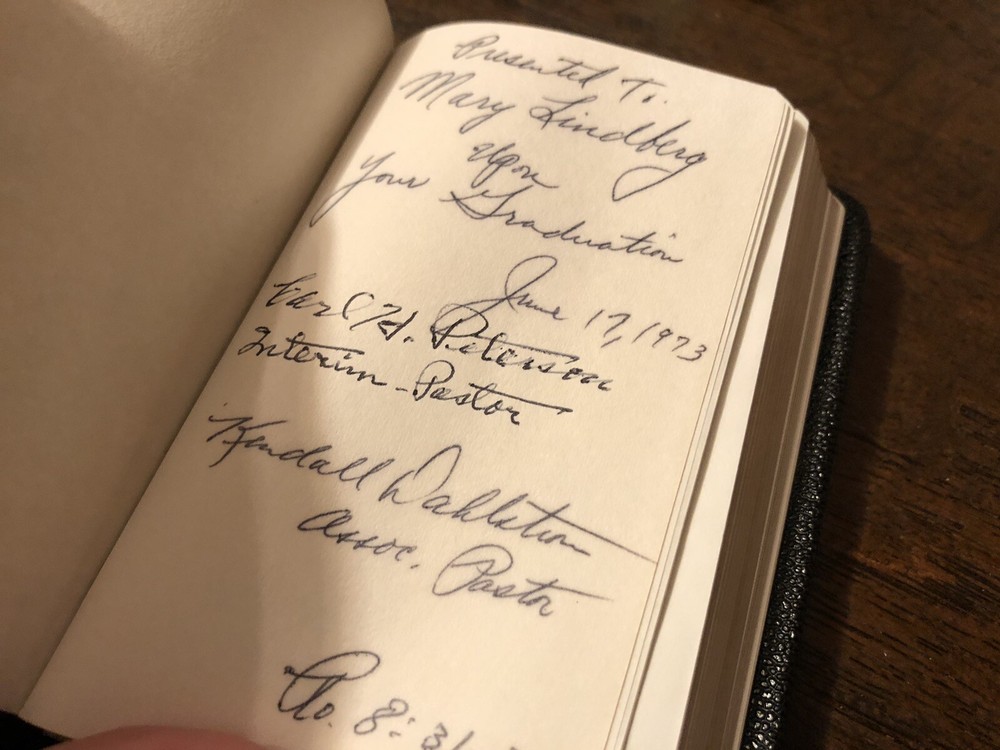 Presented To:
Mary Lindberg
Upon
Your Graduation
June 17, 1973
Carl H. Peterson
Interim-Pastor
Kendall Dahlstrom
Assoc. Pastor
Ro. 8:31